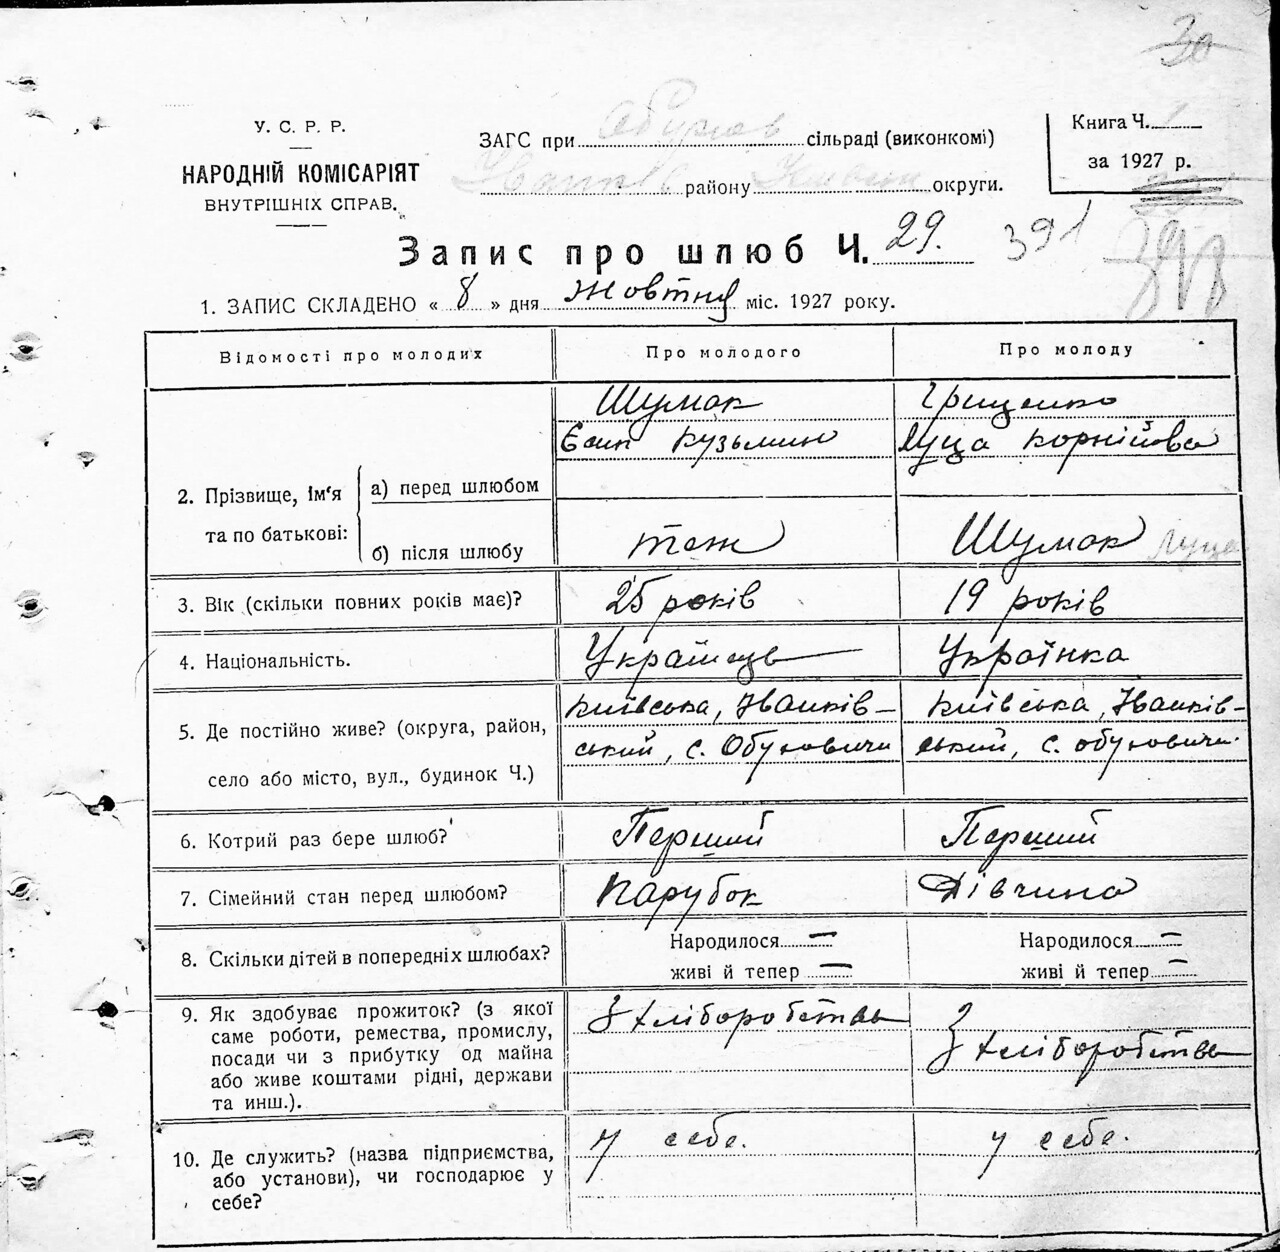 30
У. С. Р. Р.
НАРОДНІЙ КОМІСАРІЯТ
ВНУТРІШНІХ СПРАВ.
ЗАГС при Обухов сільраді (виконкомі)
Іванків району Київськ округи.
Книга Ч. 1
за 1927 р.
Запис про шлюб Ч. 29. 391
1. ЗАПИС СКЛАДЕНО « 8 » дня Жовтня міс. 1927 року.
Відомості про молодих Про молодого Про молоду
Шумак Грищенко
Єсип Кузьмин Луца Корнійова
2. Прізвище, Ім‘я а) перед шлюбом
та по батькові: б) після шлюбу теж Шумак Луца
3. Вік (скільки повних років має)? 25 років 19 років
4. Національність. Українець Українка
5. Де постійно живе? (округа, район, Київська, Іванків- Київська, Іванків-
село або місто, вул., будинок Ч.) ський, с. Обуховичи ський, с. обуховичи.
6. Котрий раз бере шлюб? Перший Перший
7. Сімейний стан перед шлюбом? Парубок Дівчина
8. Скільки дітей в попередніх шлюбах? Народилося — Народилося —
живі й тепер — живі й тепер —
9. Як здобуває прожиток? (з якої З хліборобства З хліборобства
саме роботи, ремества, промислу,
посади чи з прибутку од майна
або живе коштами рідні, держави
та инш.).
10. Де служить? (назва підприємства, у себе. у себе.
або установи), чи господарює у
себе?